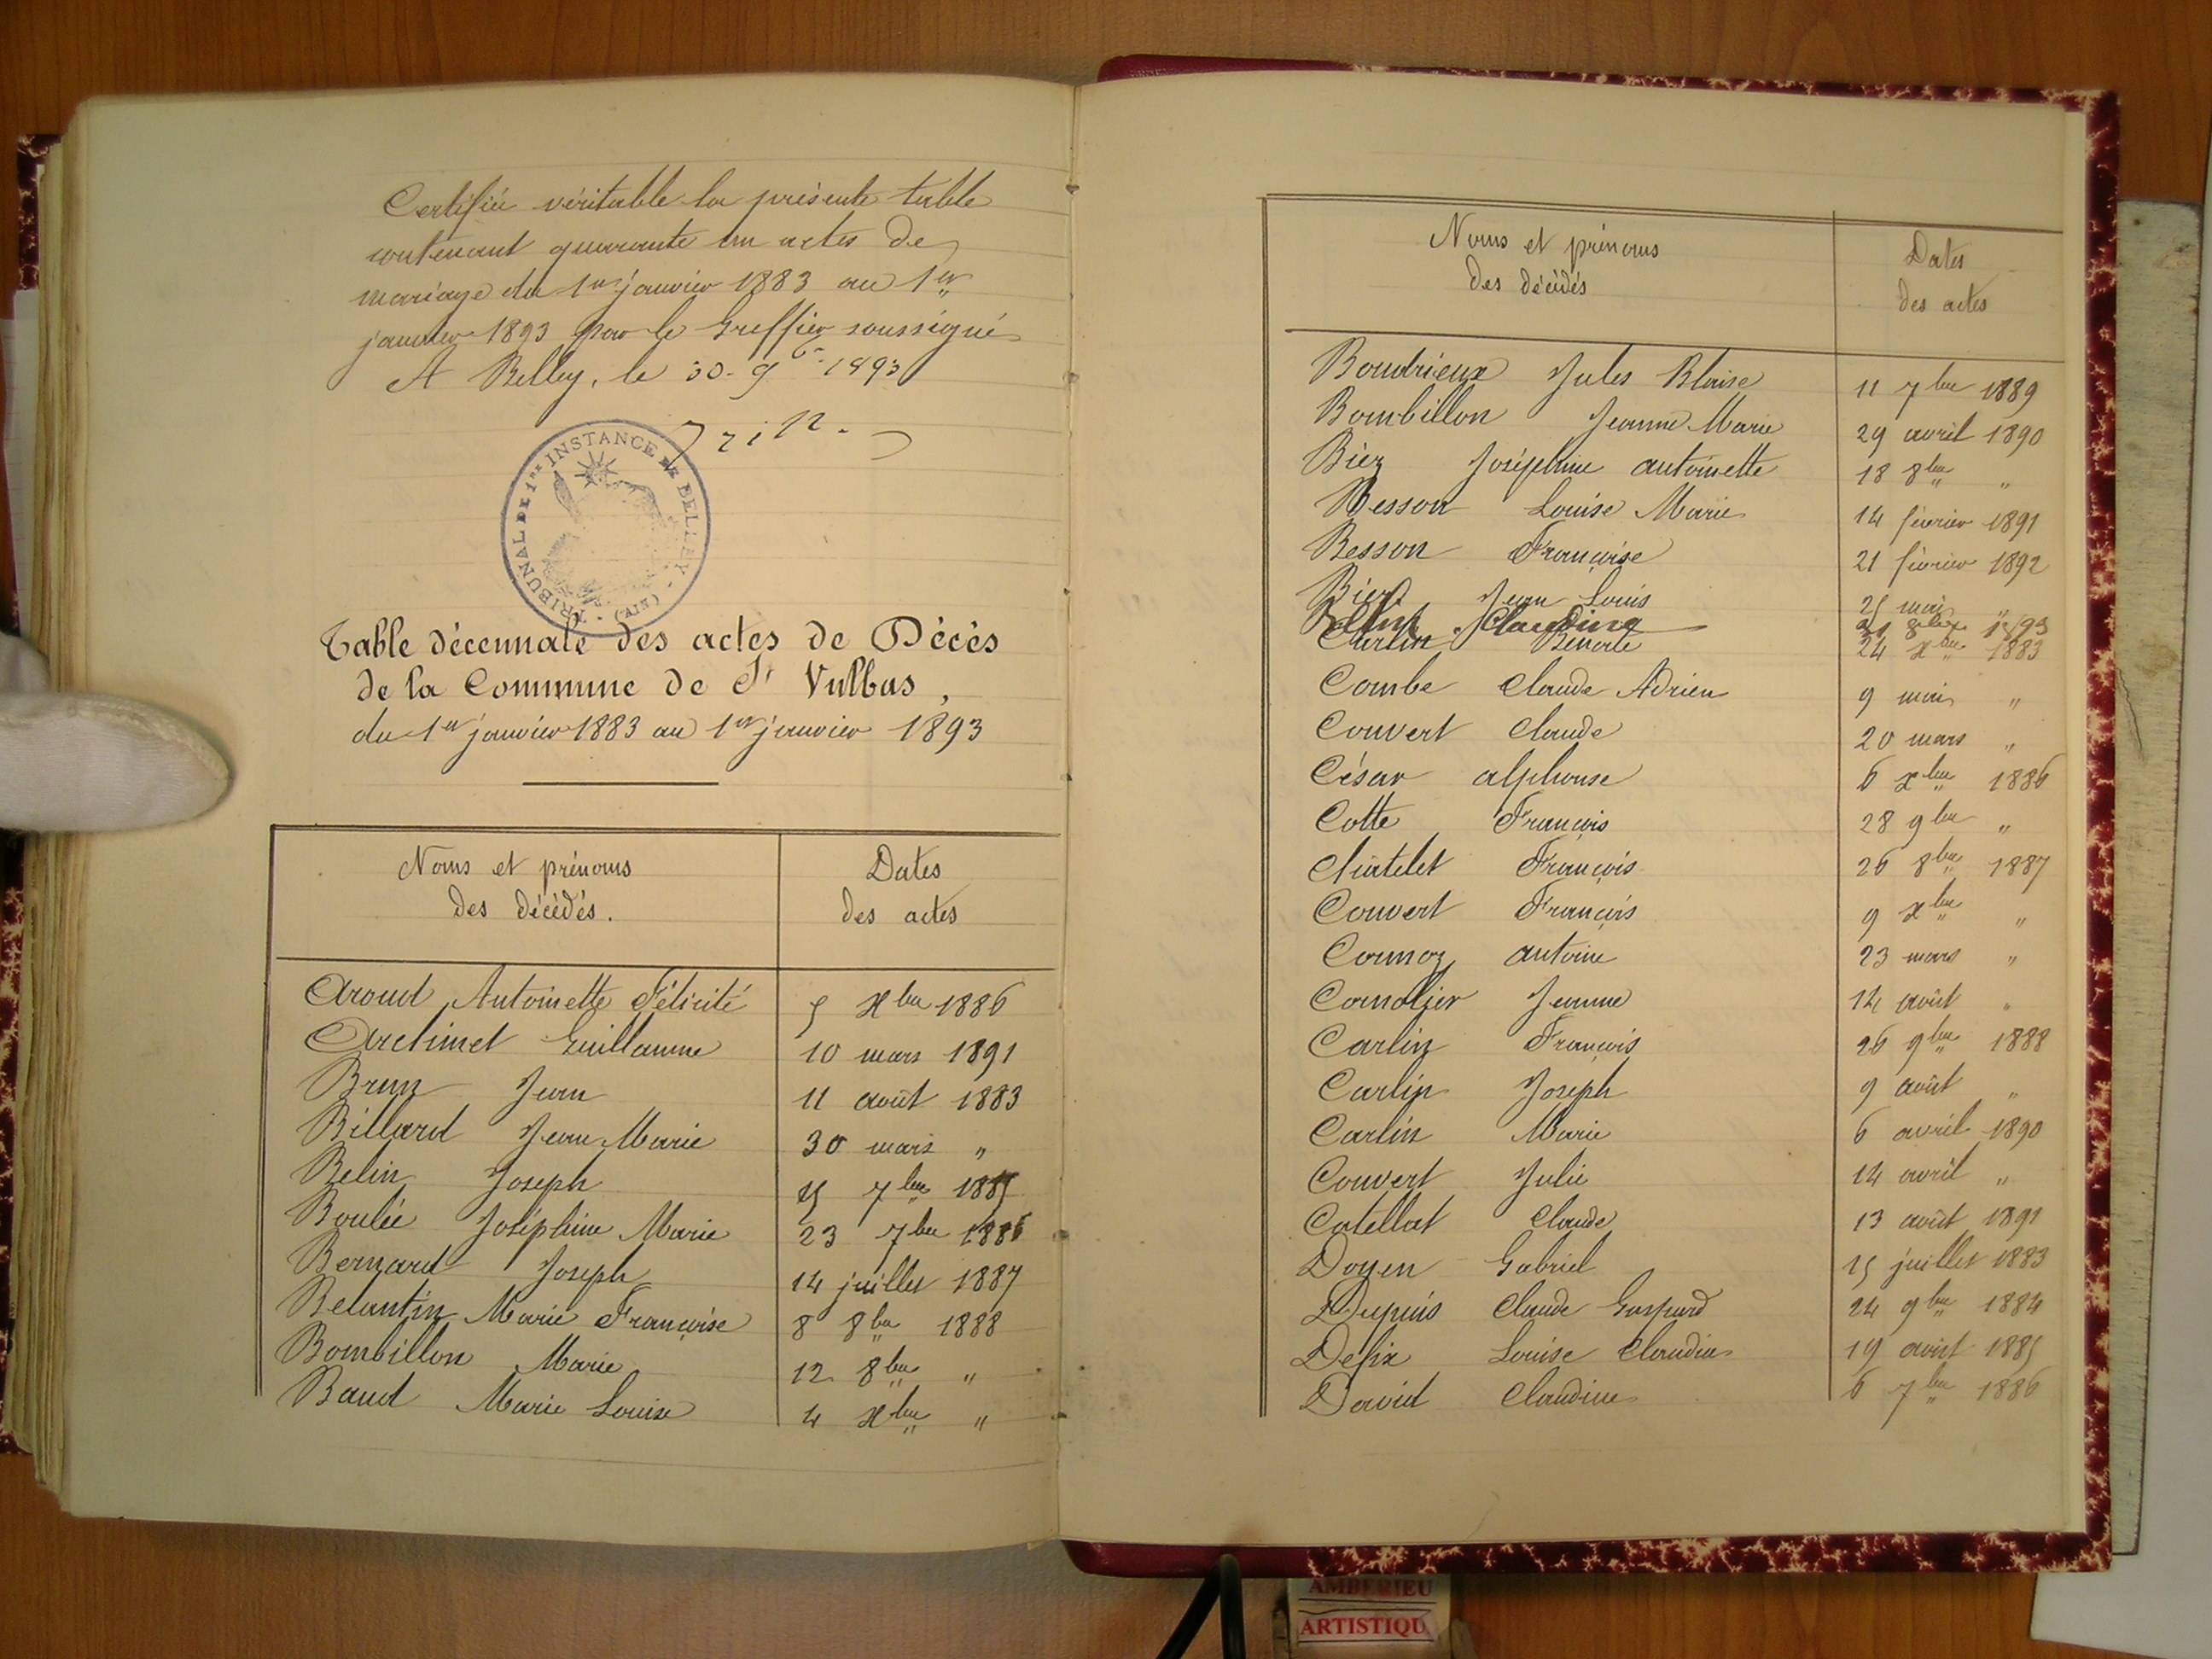 Certifiée véritable la présente table
contenant quarante un actes de
mariage du 1er janvier 1883 au 1er
janvier 1893 par le Greffier soussigné
A Belley, le 30 9bre 1893
TRIBUNAL DE 1re INSTANCE DE BELLEY - (AIN) -
Table décennale des actes de Décès
de la Commune de St Vulbas,
du 1er janvier 1883 au 1er janvier 1893
Noms et prénoms Dates
des décédés. des actes
Aroud Antoinette Félicité 5 Xbre 1886
Guillaume 10 mars 1891
Brun Jean 11 août 1883
Billard Jean Marie 30 mars "
Belin Joseph 7bre 1885
Boulée Joséphine Marie 23 7bre 1886
Bernard Joseph 14 juillet 1887
Belantin Marie Françoise 8 8bre 1888
Bombillon Marie 12 8bre "
Baud Marie Louise 4 Xbre "
Noms et prénoms Dates
des décédés des actes
Boudrieux Jules Blaise 11 7bre 1889
Bombillon Jeanne Marie 29 avril 1890
Biez Joséphine antoinette 18 8bre "
Besson Louise Marie 14 février 1891
Besson Françoise 21 février 1892
Jean Louis 25 mai "
Claudine
Carlin Benoite 24 Xbre 1883
Combe Claude Adrien 9 mai "
Couvert Claude 20 mars "
César alphonse 6 Xbre 1886
Cotte François 28 9bre "
Chatelet François 26 8bre 1887
Couvert François 9 Xbre "
Cormoz antoine 23 mars "
Cornolier Jeanne 14 août "
Carlin François 26 9bre 1888
Carlin Joseph 9 août "
Carlin Marie 6 avril 1890
Couvert Julie 14 avril "
Catellat Claude 13 août 1891
Doyen Gabriel 15 juillet 1883
Dupuis Claude Gaspard 24 9bre 1884
Défix Louise Claudia 19 août 1885
David Claudine 6 7bre 1886
AMBERIEU
ARTISTIQU